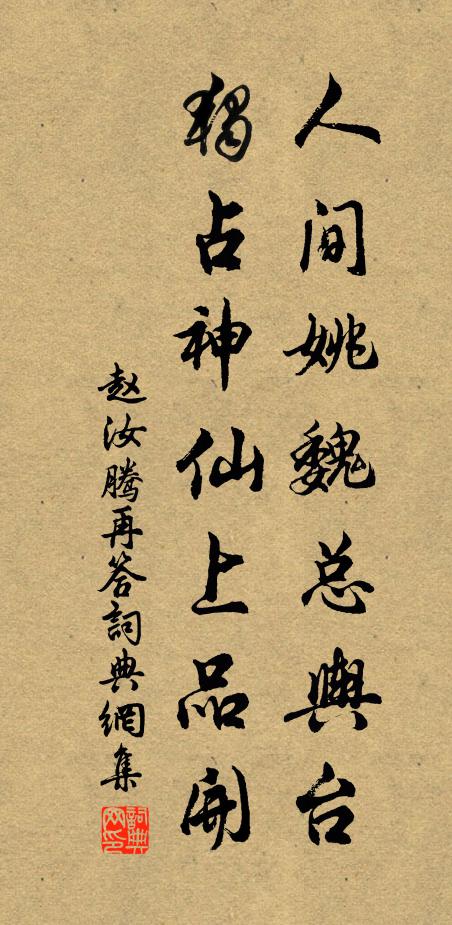 人间姚魏总舆台
独占神仙上品开
赵汝腾再答詞典網集
詞典网印